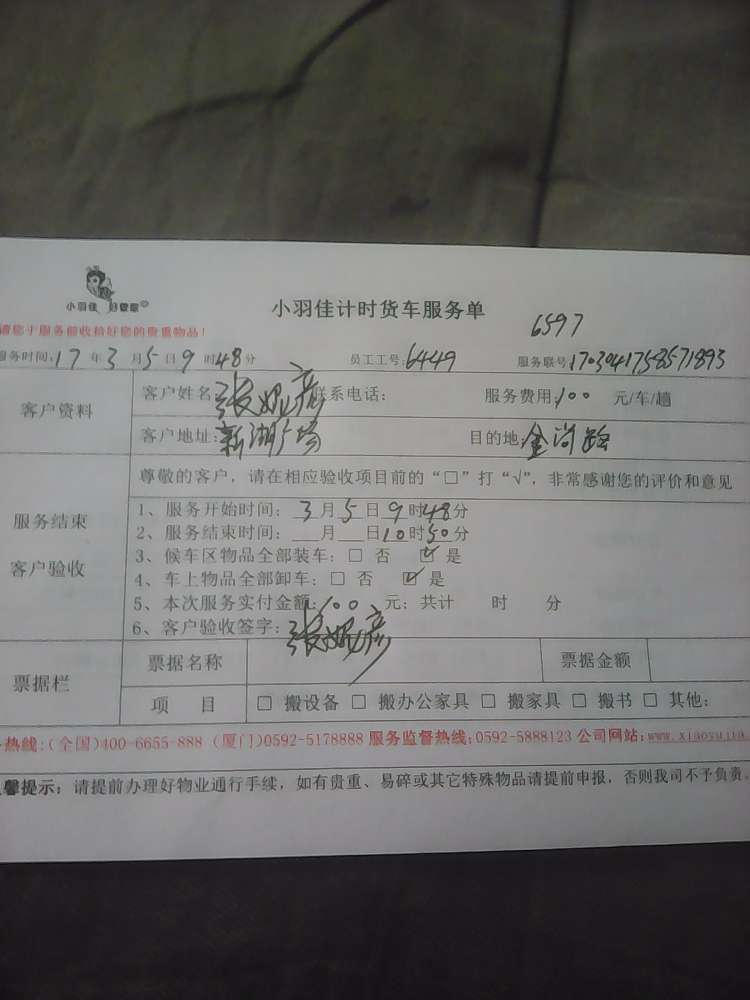 小羽佳
小羽佳计时货车服务单
6597
请您于服务前收拾好您的贵重物品！
服务时间:17年3月5日9时48分 员工工号:6449 服务联号:1703041758571893
客户资料
客户姓名:张 联系电话: 服务费用:100 元/车/趟
客户地址:新湖广场 目的地:金尚路
服务结束
客户验收
尊敬的客户，请在相应验收项目前的“□”打“√”，非常感谢您的评价和意见
1、服务开始时间: 3月5日9时48分
2、服务结束时间: 月 日10时50分
3、候车区物品全部装车: □ 否 ☑ 是
4、车上物品全部卸车: □ 否 ☑ 是
5、本次服务实付金额:100元; 共计 时 分
6、客户验收签字: 张
票据栏
票据名称 票据金额
项 目 □ 搬设备 □ 搬办公家具 □ 搬家具 □ 搬书 □ 其他:
热线:(全国)400-6655-888 (厦门)0592-5178888 服务监督热线:0592-5888123 公司网站:www.xiaoyujia
馨提示: 请提前办理好物业通行手续，如有贵重、易碎或其它特殊物品请提前申报，否则我司不予负责。